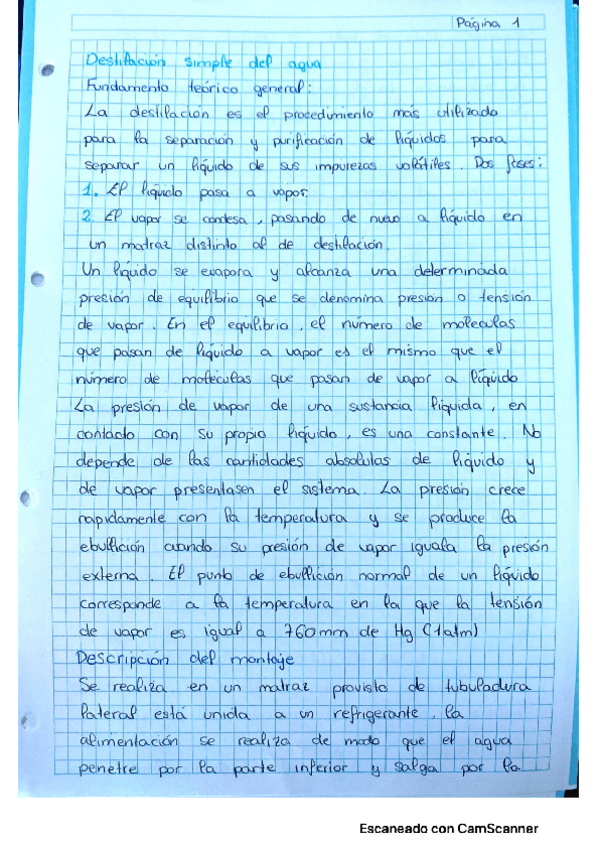 Página 1
Destilación simple del agua
Fundamento teórico general:
La destilación es el procedimiento más utilizado
para la separación y purificación de líquidos para
separar un líquido de sus impurezas volátiles. Dos fases:
1. El líquido pasa a vapor.
2. El vapor se condesa, pasando de nuevo a líquido en
un matraz distinto al de destilación.
Un líquido se evapora y alcanza una determinada
presión de equilibrio que se denomina presión o tensión
de vapor. En el equilibrio, el número de moleculas
que pasan de líquido a vapor es el mismo que el
número de moléculas que pasan de vapor a líquido
La presión de vapor de una sustancia líquida, en
contacto con su propio líquido, es una constante. No
depende de las cantidades absolutas de líquido y
de vapor presentasen el sistema. La presión crece
rapidamente con la temperatura y se produce la
ebullición cuando su presión de vapor iguala la presión
externa. El punto de ebullición normal de un líquido
corresponde a la temperatura en la que la tensión
de vapor es igual a 760 mm de Hg (1atm)
Descripción del montaje
Se realiza en un matraz provisto de tubuladura
lateral está unida a un refrigerante, la
alimentación se realiza de modo que el agua
penetre por la parte inferior y salga por la
Escaneado con CamScanner